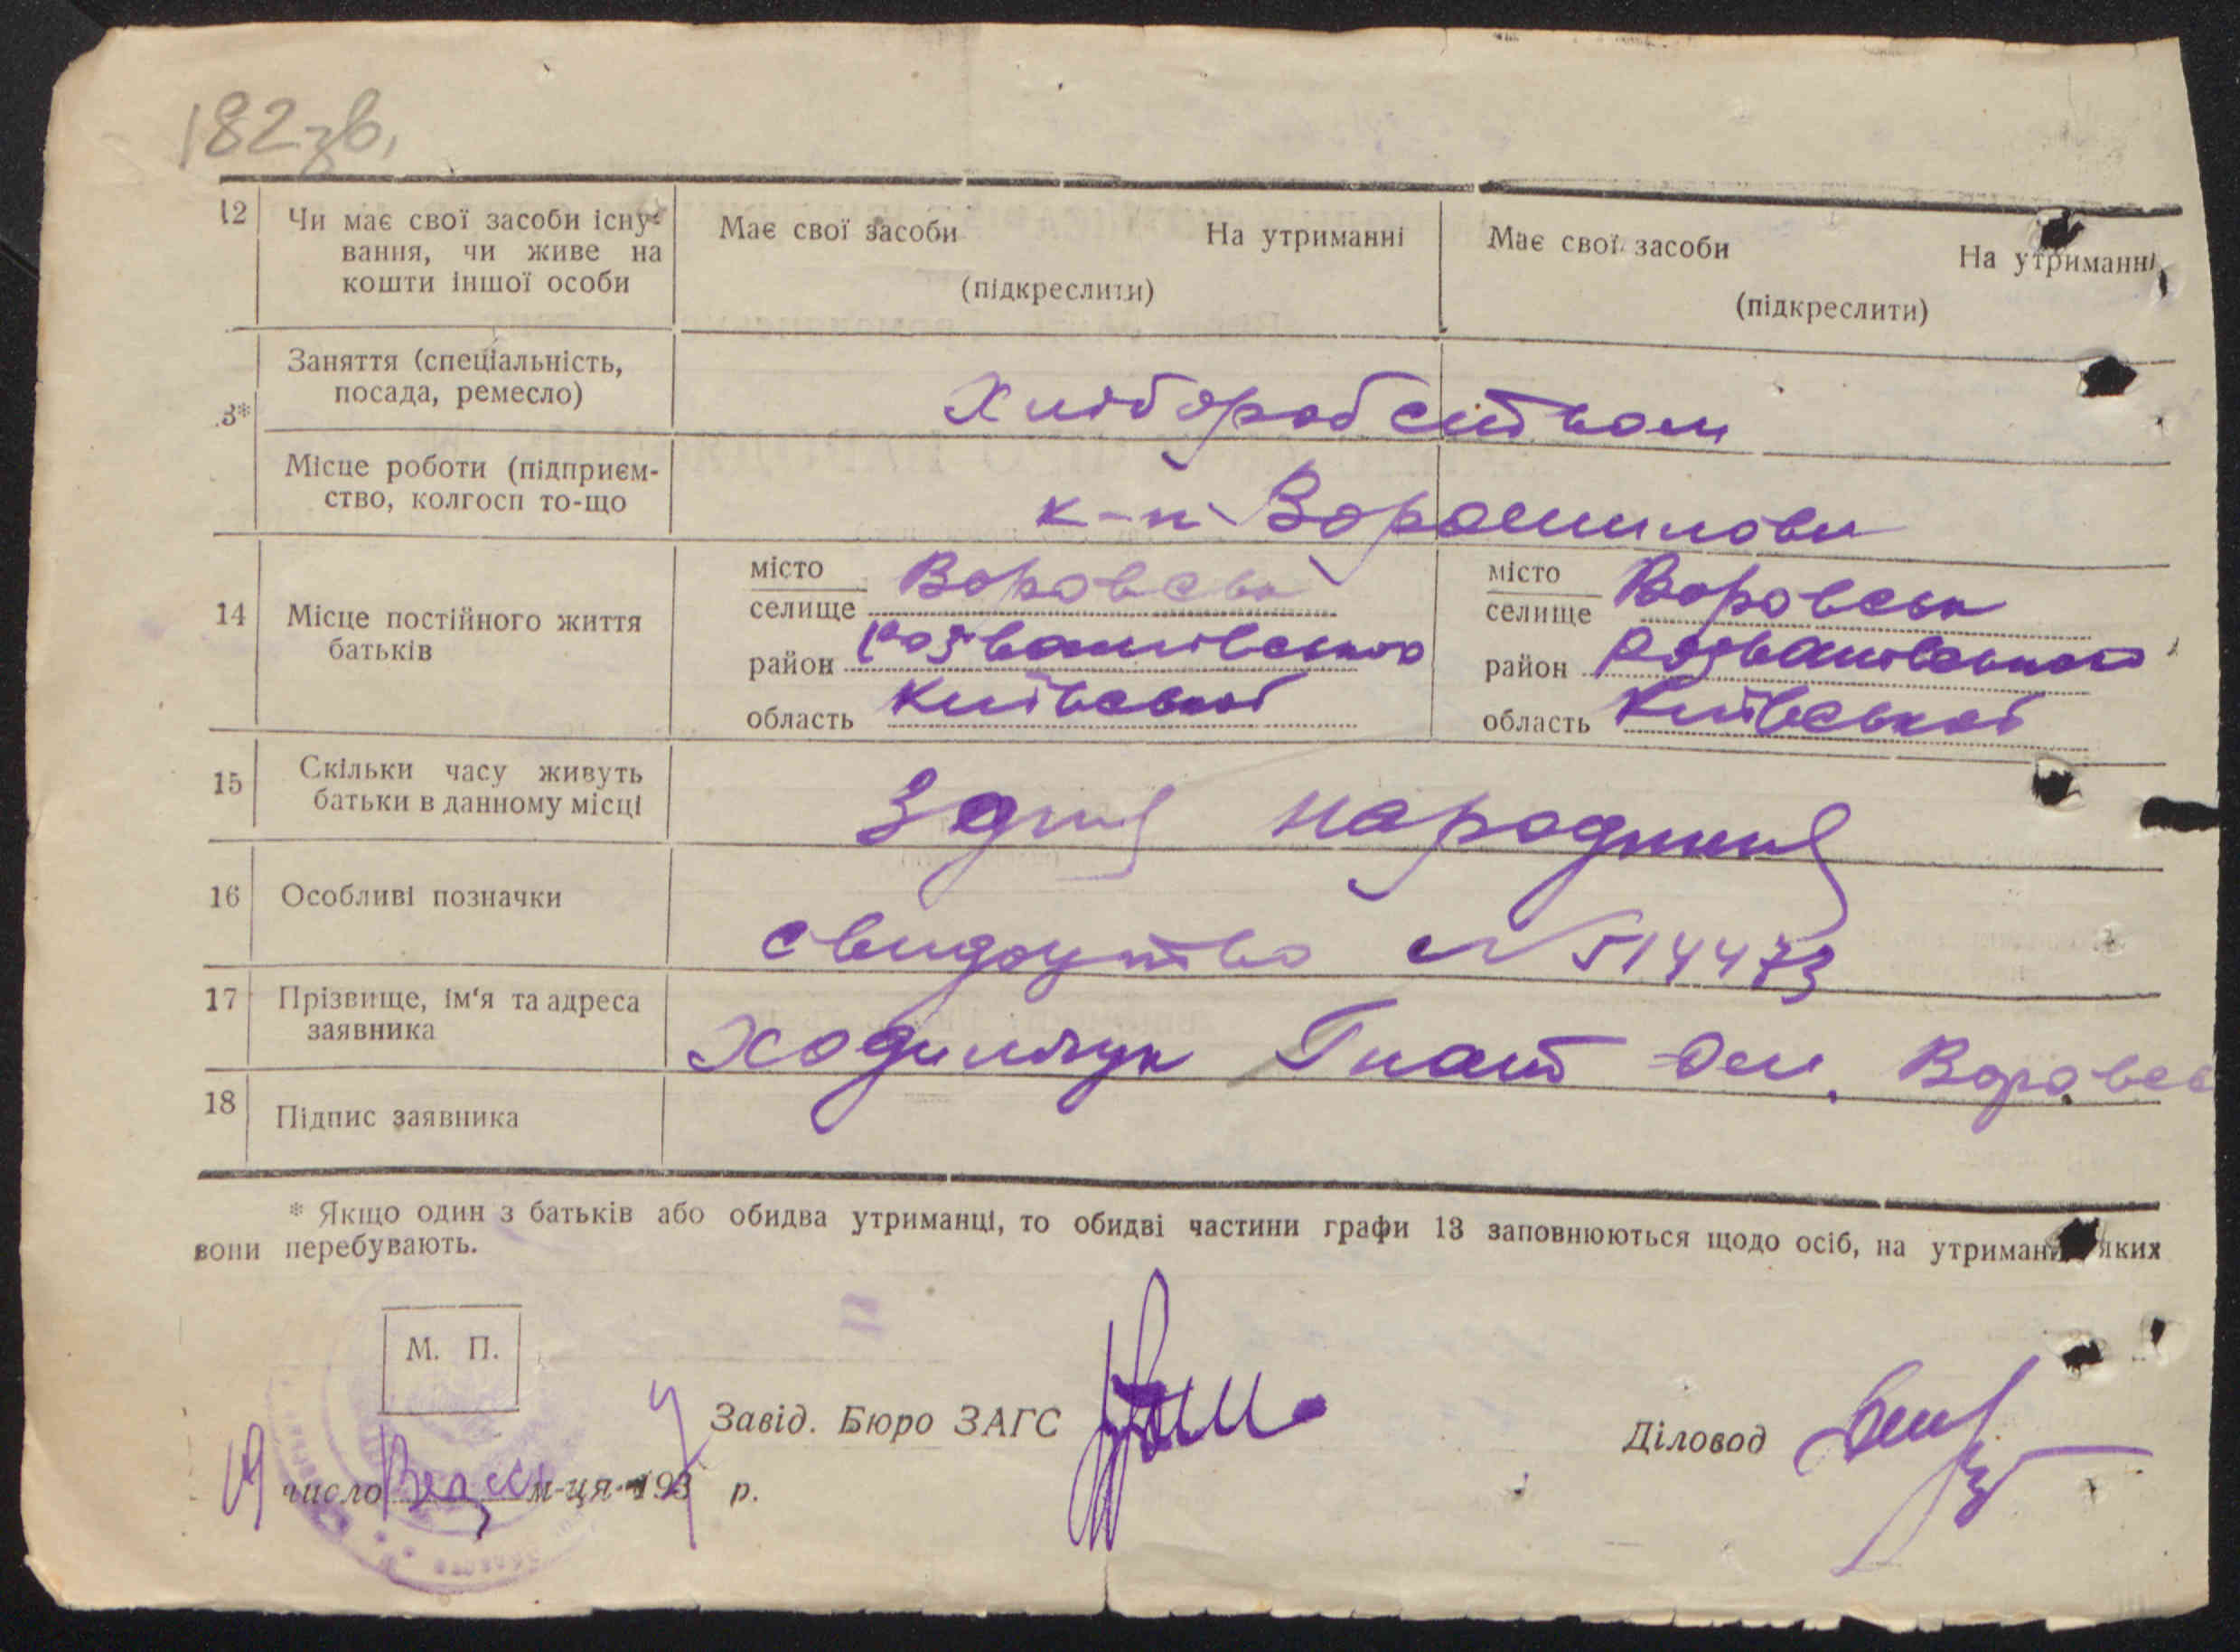 182зв.
12 Чи має свої засоби існу-
вання, чи живе на
кошти іншої особи
Має свої засоби На утриманні
(підкреслити)
Має свої засоби На утриманні
(підкреслити)
3*
Заняття (спеціальність,
посада, ремесло)
Хліборобством
Місце роботи (підприєм-
ство, колгосп то-що
к-п Ворошилова
14 Місце постійного життя
батьків
місто
селище Воровськ
район Розважівського
область Київської
місто
селище Воровськ
район Розважівського
область Київської
15 Скільки часу живуть
батьки в данному місці
З дня народження
16 Особливі позначки
свидоцтво № 514473
17 Прізвище, ім'я та адреса
заявника
Ходимчук Гнат Ом.
18 Підпис заявника
* Якщо один з батьків або обидва утриманці, то обидві частини графи 13 заповнюються щодо осіб, на утриманні яких
вони перебувають.
М. П.
Завід. Бюро ЗАГС
Діловод
19 число м-ця 193 р.